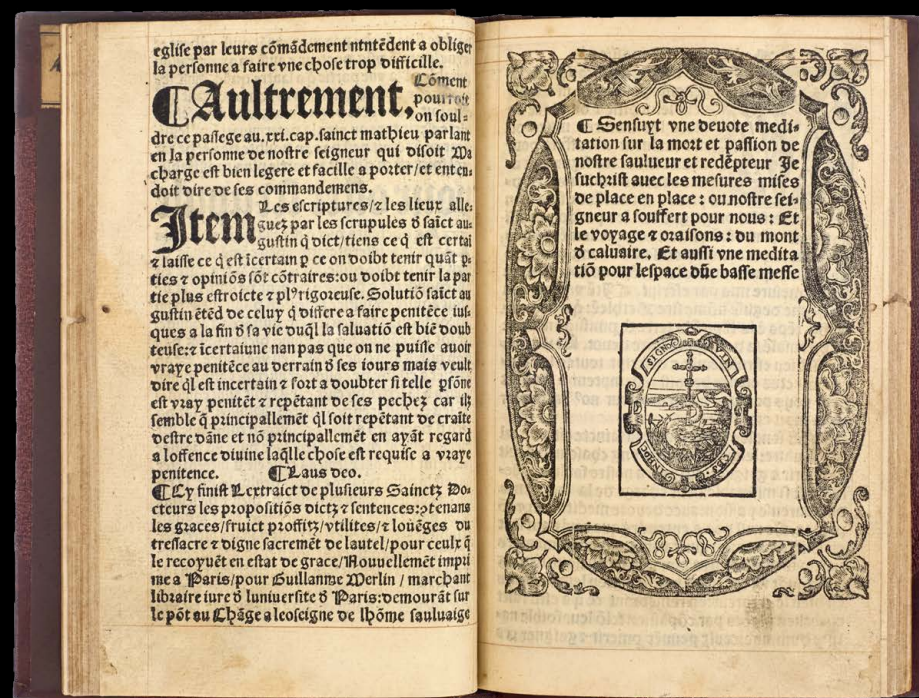 eglise par leurs cõmãdement ntntẽdent a obliger
la personne a faire vne chose trop difficille.
⸿ Aultrement, Cõment
pourroit
on soul⸗
dre ce passege au.xxi.cap.sainct mathieu parlant
en la personne de nostre seigneur qui disoit Ma
charge est bien legere et facille a porter/et enten⸗
doit dire de ses commandemens.
Item Les escriptures/⁊ les lieux alle⸗
guez par les scrupules õ saĩct au⸗
gustin q̃ dict/tiens ce q̃ est certai
⁊ laisse ce q̃ est ĩcertain ꝑ ce on doibt tenir quãt ꝑ⸗
ties ⁊ opiniõs sõt cõtraires:ou doibt tenir la par
tie plus estroicte ⁊ plꝰrigoreuse. Solutiõ saĩct au
gustin ẽtẽd de celuy q̃ differe a faire penitẽce ius⸗
ques a la fin õ sa vie duq̃l la saluatiõ est biẽ doub
teuse:⁊ ĩcertaiune nan pas que on ne puisse auoir
vraye penitẽce au derrain õ ses iours mais veult
dire q̃l est incertain ⁊ fort a doubter si telle ꝑsõne
est vray penitẽt ⁊ repẽtant de ses pechez car ilz
semble q̃ principallemẽt q̃l soit repẽtant de craĩte
destre dãne et nõ principallemẽt en ayãt regard
a loffence diuine laq̃lle chose est requise a vraye
penitence. ⸿Laus deo.
⸿Cy finist Lextraict de plusieurs Sainctz Do⸗
cteurs les propositiõs dictz ⁊ sentences:ↄtenans
les graces/fruict proffitz/vtilites/⁊ louẽges du
tressacre ⁊ digne sacremẽt de lautel/pour ceulx q̃
le recoyuẽt en estat de grace/Nouuellemẽt impri
me a Paris/pour Guillanme Merlin / marchant
libraire iure õ luniuersite õ Paris:demourãt sur
le põt au Chãge a leoseigne de lhõme sauluaige
⸿ Sensuyt vne deuote medi⸗
tation sur la mort et passion de
nostre saulueur et redẽpteur Je
suchrist auec les mesures mises
de place en place : ou nostre sei⸗
gneur a souffert pour nous : Et
le voyage ⁊ oraisons : du mont
õ caluaire. Et aussi vne medita
tiõ pour lespace dũe basse messe